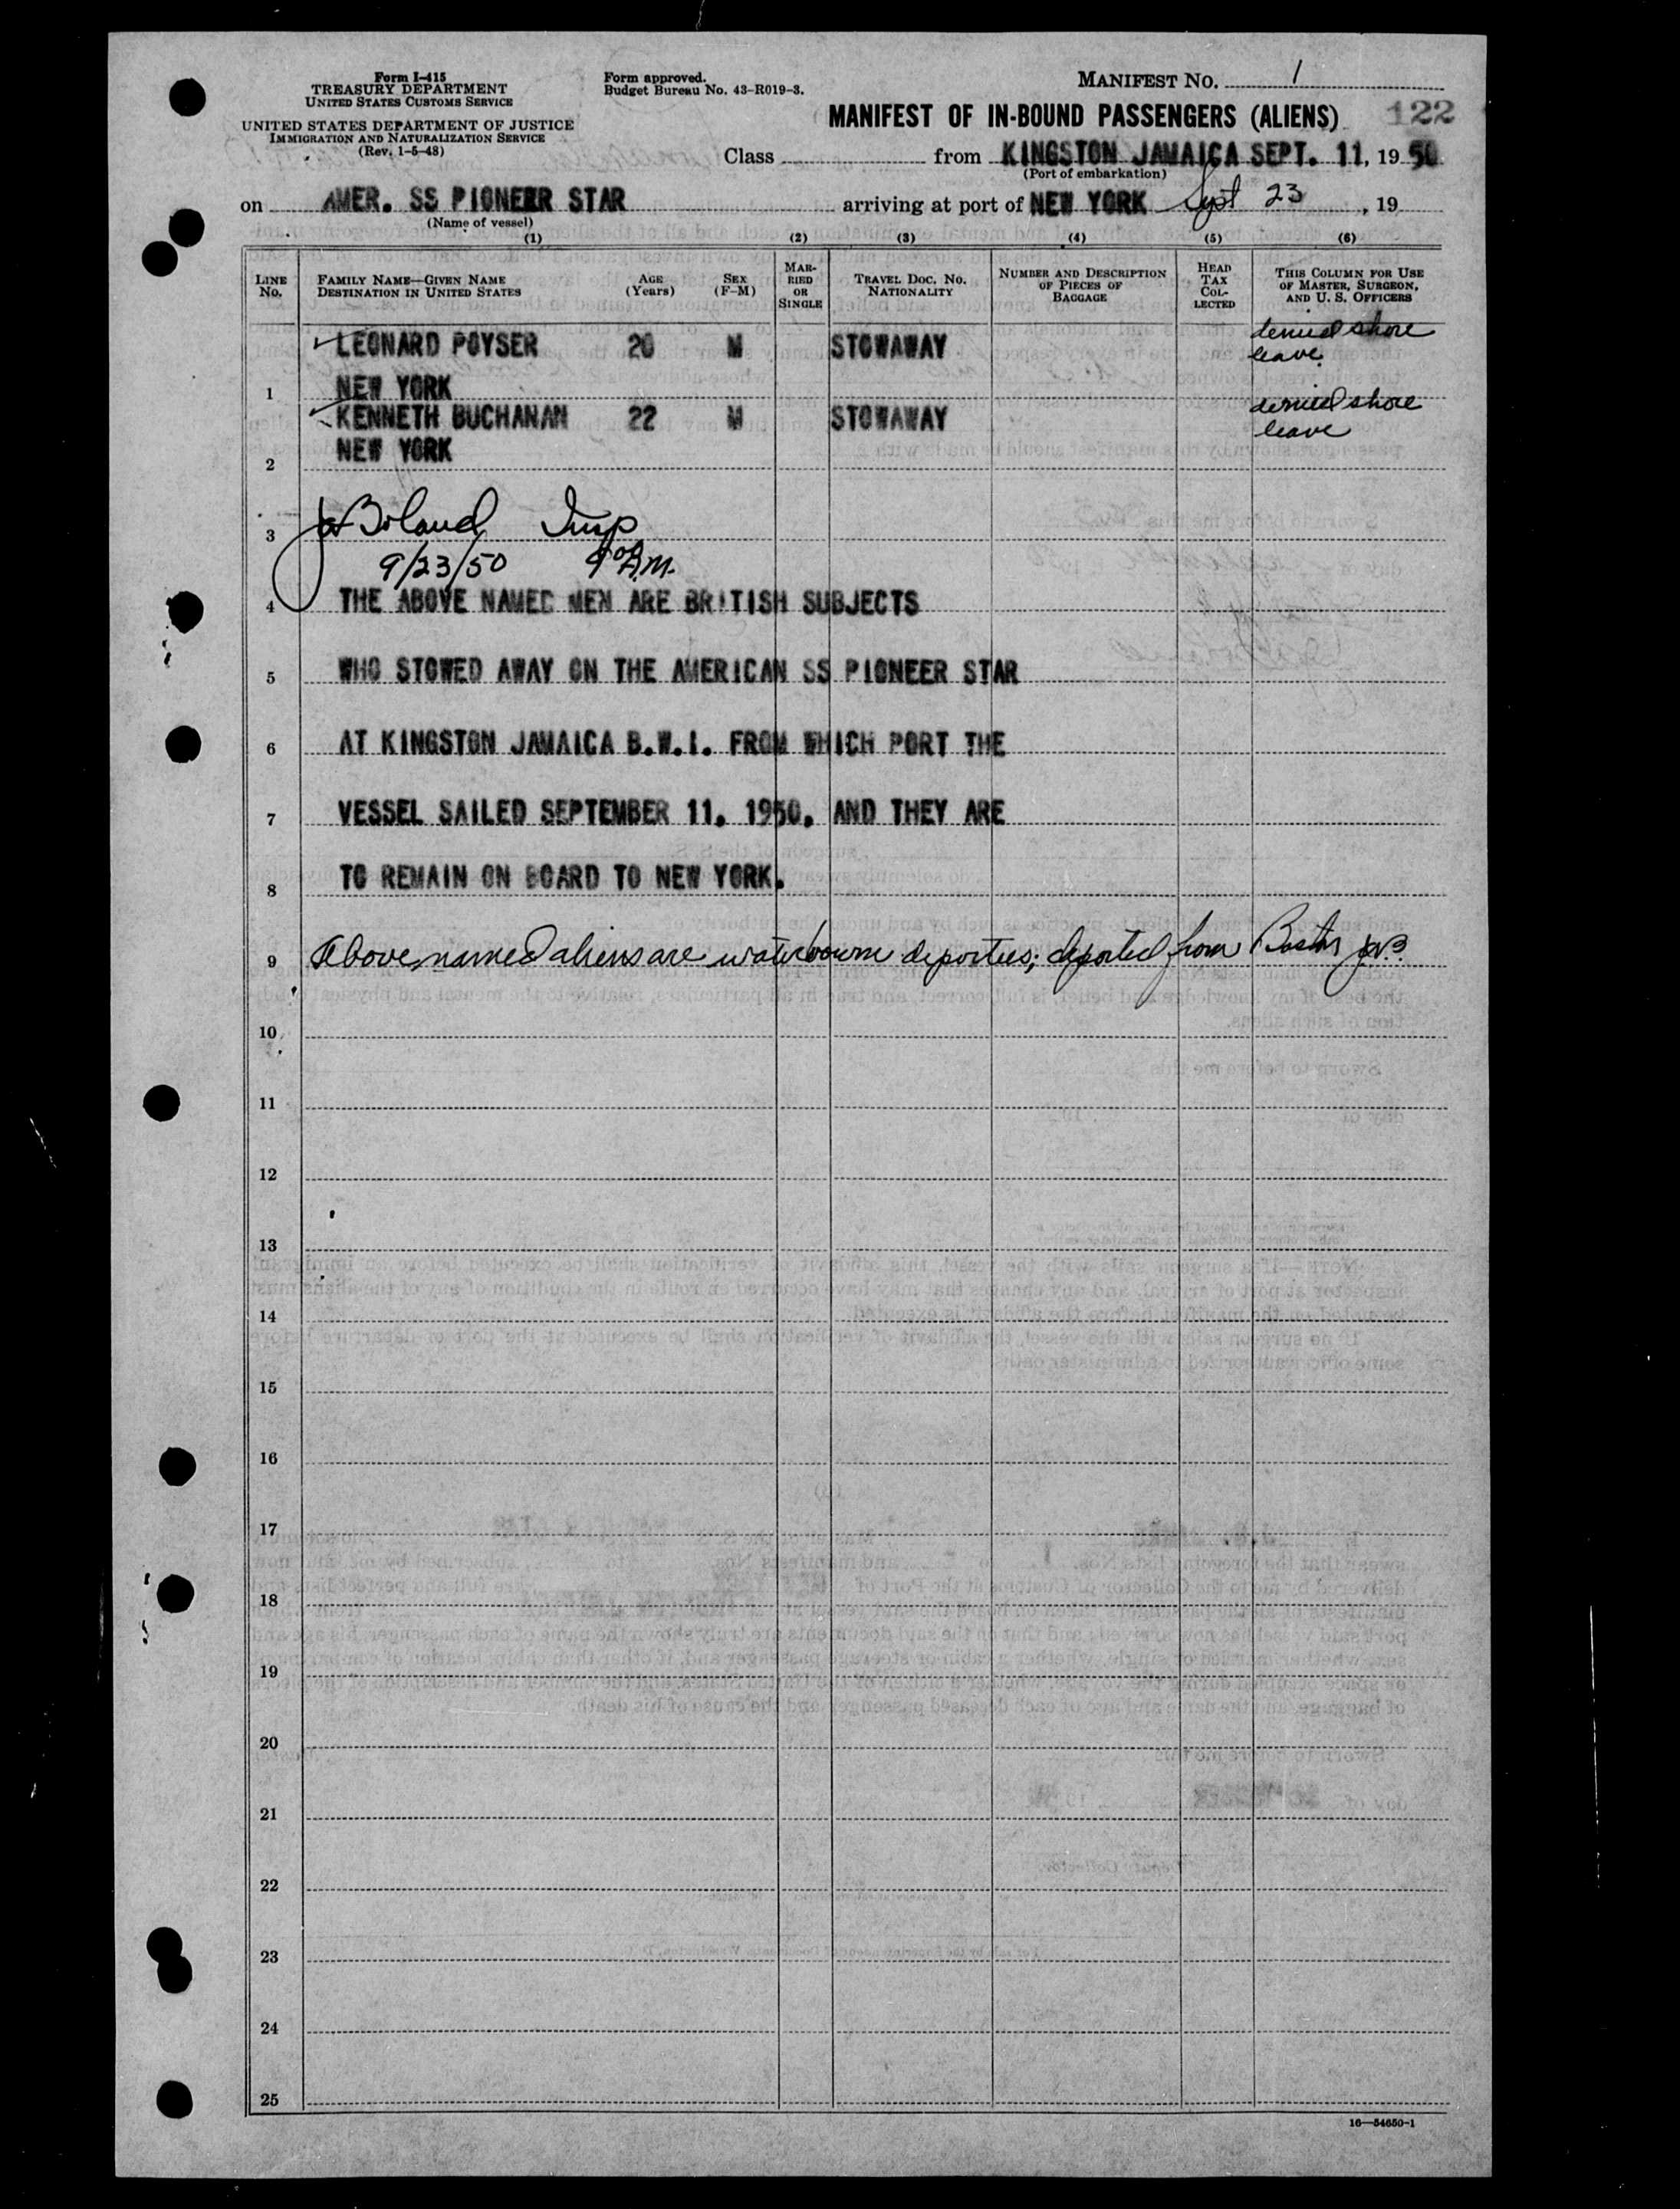 Form I-415
TREASURY DEPARTMENT
UNITED STATES CUSTOMS SERVICE
UNITED STATES DEPARTMENT OF JUSTICE
IMMIGRATION AND NATURALIZATION SERVICE
(Rev. 1-5-48)
Form approved.
Budget Bureau No. 43-R019-3.
MANIFEST NO. 1
MANIFEST OF IN-BOUND PASSENGERS (ALIENS) 122
Class from KINGSTON JAMAICA SEPT. 11, 1950
(Port of embarkation)
on AMER. SS PIONEER STAR arriving at port of NEW YORK Sept 23, 19
(Name of vessel)
(1) (2) (3) (4) (5) (6)
LINE NO. FAMILY NAME—GIVEN NAME DESTINATION IN UNITED STATES AGE (Years) SEX (F-M) MARRIED OR SINGLE TRAVEL DOC. NO. NATIONALITY NUMBER AND DESCRIPTION OF PIECES OF BAGGAGE HEAD TAX COLLECTED THIS COLUMN FOR USE OF MASTER, SURGEON, AND U. S. OFFICERS
LEONARD POYSER 20 M STOWAWAY denied shore leave
1 NEW YORK
KENNETH BUCHANAN 22 M STOWAWAY denied shore leave
2 NEW YORK
3 Boland Insp
9/23/50 9 00 A.M.
4 THE ABOVE NAMED MEN ARE BRITISH SUBJECTS
5 WHO STOWED AWAY ON THE AMERICAN SS PIONEER STAR
6 AT KINGSTON JAMAICA B.W.I. FROM WHICH PORT THE
7 VESSEL SAILED SEPTEMBER 11. 1950. AND THEY ARE
8 TO REMAIN ON BOARD TO NEW YORK.
9 Above named aliens are waterbourne deportees; deported from Boston
10
11
12
13
14
15
16
17
18
19
20
21
22
23
24
25
16—54650-1